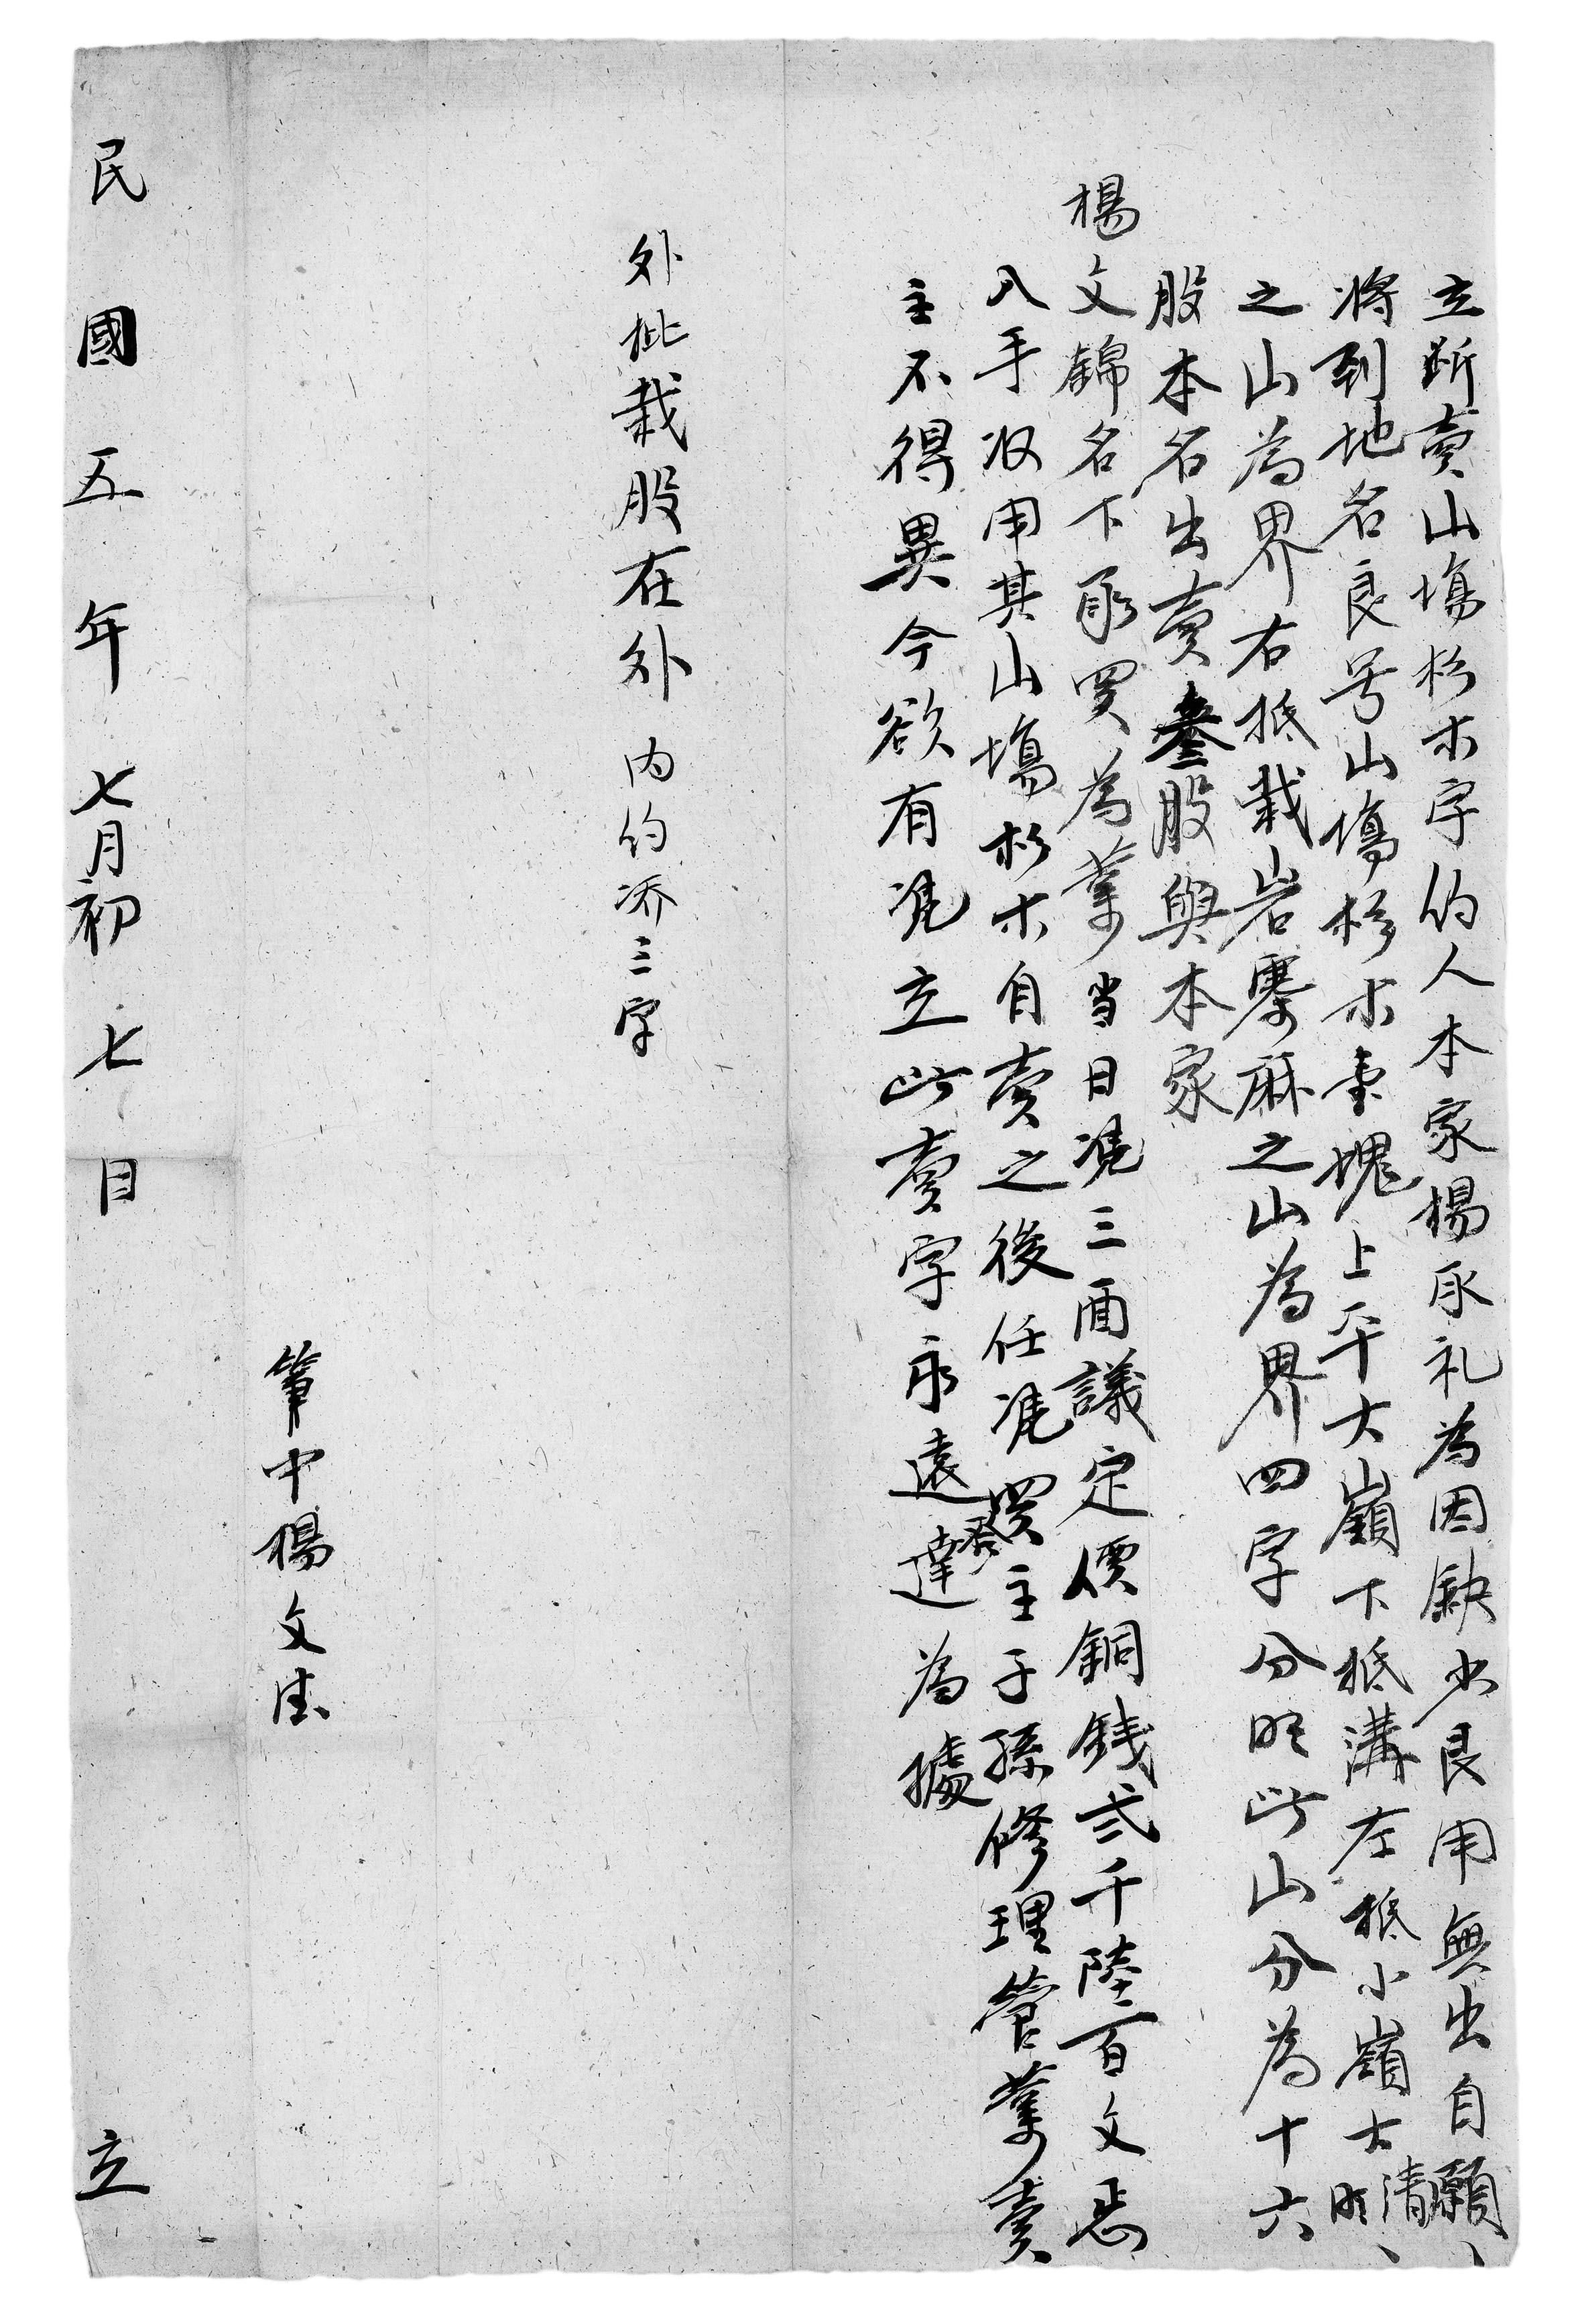 立斷賣山塲杉木字約人本家楊承礼為因缺少良用無出自願、
將到地名良号山塲杉木壹塊上平大嶺下抵溝左抵小嶺士清明、
之山為界右抵栽岩驀麻之山為界四字分明此山分為十六
股本名出賣叁股與本家
楊文錦名下承買為業當日凭三面議定價銅錢弍千陸百文恴
入手収用其山塲杉木自賣之後任凭買主子孫修理管業賣
主不得異今欲有凭立此賣字永遠發達為據
外批栽股在外 内約添三字
筆中楊文法
民國五年七月初七日 立